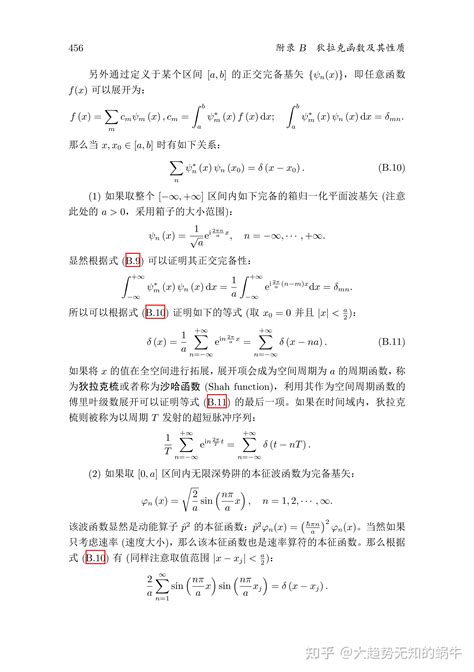 456 附录 B 狄拉克函数及其性质
另外通过定义于某个区间 [a, b] 的正交完备基矢 {ψₙ(x)}，即任意函数
f(x) 可以展开为：
f (x) = ∑ₘ cₘψₘ (x) , cₘ = ∫ₐᵇ ψₘ* (x) f (x) dx; ∫ₐᵇ ψₘ* (x) ψₙ (x) dx = δₘₙ.
那么当 x, x₀ ∈ [a, b] 时有如下关系：
∑ₙ ψₙ* (x) ψₙ (x₀) = δ (x − x₀) . (B.10)
(1) 如果取整个 [−∞, +∞] 区间内如下完备的箱归一化平面波基矢 (注意
此处的 a > 0，采用箱子的大小范围)：
ψₙ (x) = 1/√a e^{i 2πn/a x}, n = −∞, ⋯ , +∞.
显然根据式 (B.9) 可以证明其正交完备性：
∫_{−∞}^{+∞} ψₘ* (x) ψₙ (x) dx = 1/a ∫_{−∞}^{+∞} e^{i 2π/a (n−m)x} dx = δₘₙ.
所以可以根据式 (B.10) 证明如下的等式 (取 x₀ = 0 并且 |x| < a/2)：
δ (x) = 1/a ∑_{n=−∞}^{+∞} e^{in 2π/a x} = ∑_{n=−∞}^{+∞} δ (x − na) . (B.11)
如果将 x 的值在全空间进行拓展，展开项会成为空间周期为 a 的周期函数，称
为狄拉克梳或者称为沙哈函数 (Shah function)，利用其作为空间周期函数的
傅里叶级数展开可以证明等式 (B.11) 的最后一项。如果在时间域内，狄拉克
梳则被称为以周期 T 发射的超短脉冲序列：
1/T ∑_{n=−∞}^{+∞} e^{in 2π/T t} = ∑_{n=−∞}^{+∞} δ (t − nT) .
(2) 如果取 [0, a] 区间内无限深势阱的本征波函数为完备基矢：
φₙ (x) = √(2/a) sin (nπ/a x) , n = 1, 2, ⋯ , ∞.
该波函数显然是动能算子 p̂² 的本征函数：p̂²φₙ(x) = (ℏπn/a)² φₙ(x)。当然如果
只考虑速率 (速度大小)，那么该本征函数也是速率算符的本征函数。那么根据
式 (B.10) 有 (同样注意取值范围 |x − xⱼ| < a/2)：
2/a ∑_{n=1}^{∞} sin (nπ/a x) sin (nπ/a xⱼ) = δ (x − xⱼ) .
知乎 @大趋势无知的蜗牛